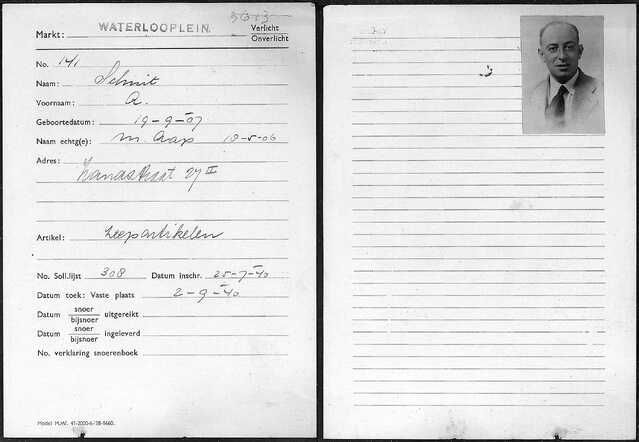 5013
Markt: WATERLOOPLEIN. Verlicht
Onverlicht
No. 141
Naam: Schmit
Voornaam: A.
Geboortedatum: 19-9-07
Naam echtg(e): M. Aap 19-5-06
Adres:
straat 27 II
Artikel: Zeepartikelen
No. Soll.lijst 308 Datum inschr. 25-7-40
Datum toek: Vaste plaats 2-9-40
Datum snoer uitgereikt
bijsnoer
Datum snoer ingeleverd
bijsnoer
No. verklaring snoerenboek